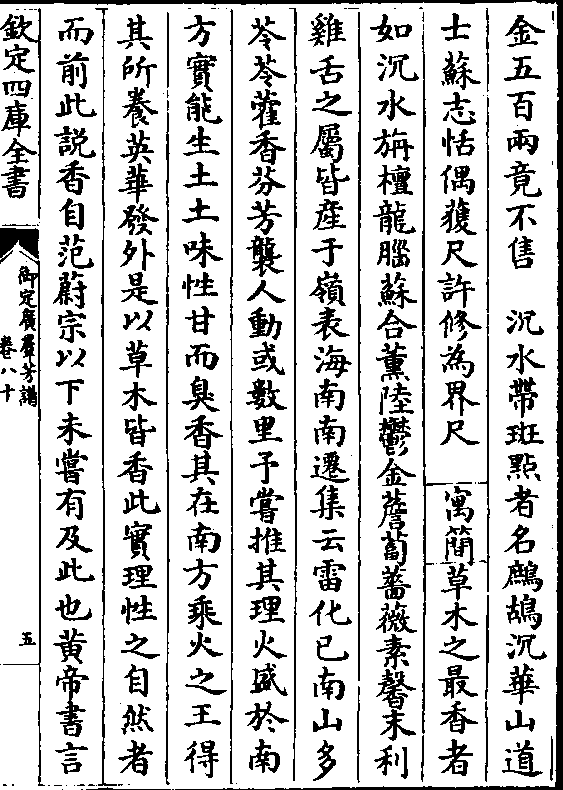 金五百兩竟不售　沉水帶斑點者名鷓鴣沉華山道
士蘇志恬偶獲尺許修為界尺　寓簡草木之最香者
如沉水旃檀龍腦蘇合薰陸鬱金薝蔔薔薇素馨末利
雞舌之屬皆産于嶺表海南南遷集云雷化已南山多
苓苓藿香芬芳襲人動或數里予嘗推其理火盛於南
方實能生土土味性甘而臭香其在南方乘火之王得
其所養英華發外是以草木皆香此實理性之自然者
而前此説香自范蔚宗以下未嘗有及此也黄帝書言
欽定四庫全書
御定廣羣芳譜
卷八十
五